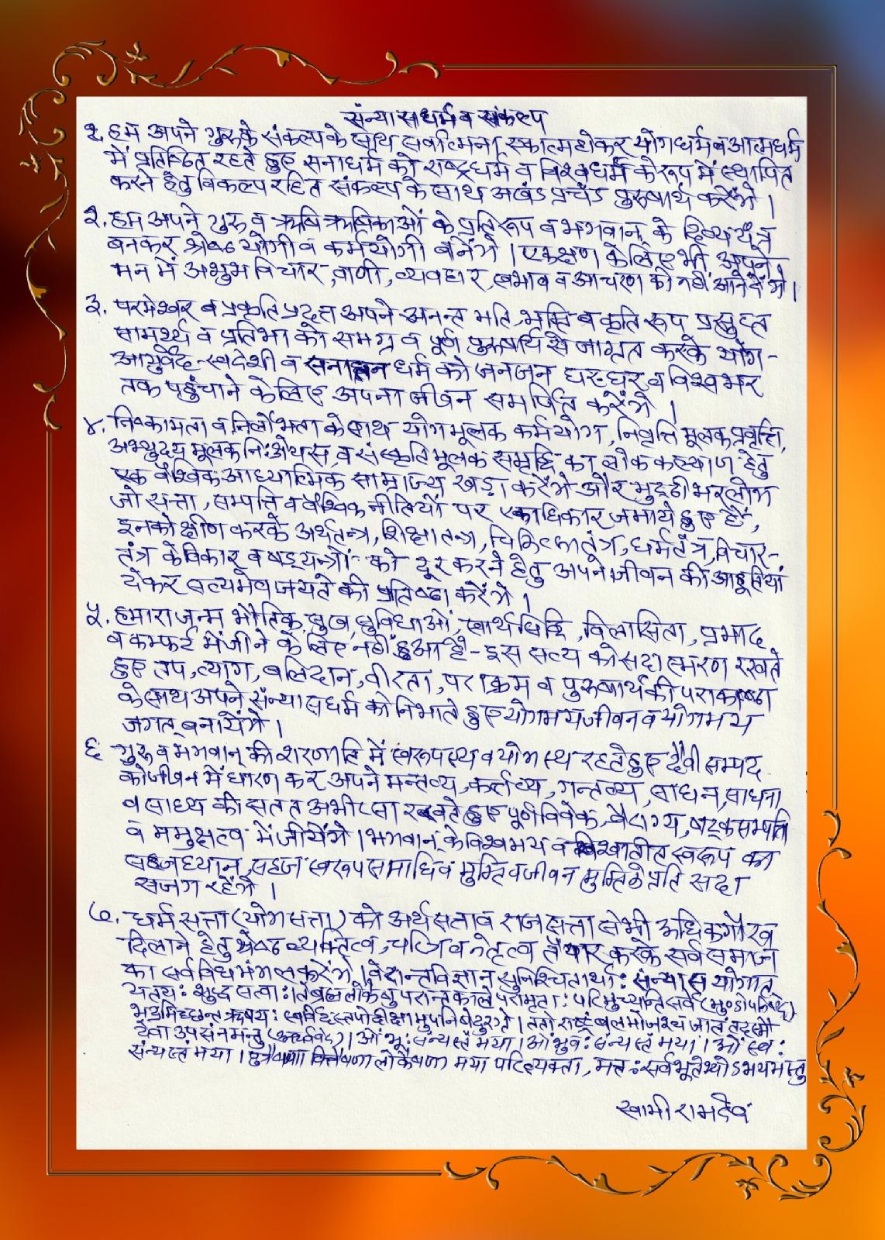 संन्यास धर्म व संकल्प
१. हम अपने गुरु के संकल्प के साथ सर्वात्मना एकात्म होकर योगधर्म व आत्मधर्म
में प्रतिष्ठित रहते हुए सनाधर्म को राष्ट्रधर्म व विश्वधर्म के रूप में स्थापित
करने हेतु विकल्प रहित संकल्प के साथ अखंड प्रचंड पुरुषार्थ करेंगे।
२. हम अपने गुरु व ऋषि ऋषिकाओं के प्रतिरूप व भगवान् के दिव्य यंत्र
बनकर श्रेष्ठ योगी व कर्मयोगी बनेंगे। एक क्षण के लिए भी अपने
मन में अशुभ विचार, वाणी, व्यवहार, स्वभाव व आचरण को नहीं आने देंगे।
३. परमेश्वर व प्रकृति प्रदत्त अपने अनन्त मति, भक्ति व कृति रूप प्रसुप्त
सामर्थ्य व प्रतिभा को समग्र व पूर्ण पुरुषार्थ से जाग्रत करके योग-
आयुर्वेद-स्वदेशी व सनातन धर्म को जनजन घर-घर व विश्वभर
तक पहुंचाने के लिए अपना जीवन समर्पित करेंगे।
४. निष्कामता व निर्लोभता के साथ योगमूलक कर्मयोग, निवृत्ति मूलक प्रवृत्ति,
अभ्युदय मूलक निःश्रेयस, व संस्कृति मूलक समृद्धि का लोक कल्याण हेतु
एक वैश्विक आध्यात्मिक साम्राज्य खड़ा करेंगे और मुट्ठीभर लोग
जो सत्ता, सम्पत्ति व वैश्विक नीतियों पर एकाधिकार जमाये हुए हैं,
इनको क्षीण करके अर्थतन्त्र, शिक्षातन्त्र, चिकित्सातंत्र, धर्मतंत्र, विचार-
तंत्र के विकार व षड्यन्त्रों को दूर करने हेतु अपने जीवन की आहूतियां
देकर सत्यमेव जयते की प्रतिष्ठा करेंगे।
५. हमारा जन्म भौतिक सुख, सुविधाओं, स्वार्थ सिद्धि, विलासिता, प्रमाद
व कम्फर्ट में जीने के लिए नहीं हुआ है- इस सत्य को सदा स्मरण रखते
हुए तप, त्याग, बलिदान, वीरता, पराक्रम व पुरुषार्थ की पराकाष्ठा
के साथ अपने संन्यास धर्म को निभाते हुए योगमय जीवन व योगमय
जगत् बनायेंगे।
६ गुरु व भगवान् की शरणागति में स्वरूपस्थ व योगस्थ रहते हुए दैवी सम्पद्
को जीवन में धारण कर अपने मन्तव्य, कर्तव्य, गन्तव्य, साधन, साधना
व साध्य की सतत अभीप्सा रखते हुए पूर्ण विवेक, वैराग्य, षट्क सम्पत्ति
व ममुक्षत्व में जीयेंगे। भगवान् के विश्वमय व विश्वातीत स्वरूप का
सहजध्यान, सहज स्वरूप समाधि व मुक्ति व जीवन मुक्ति के प्रति सदा
सजग रहेंगे।
७. धर्म सत्ता (योग सत्ता) को अर्थ सत्ता व राज सत्ता से भी अधिक गौरव
दिलाने हेतु श्रेष्ठ व्यक्तित्व, चरित्र व नेतृत्व तैयार करके सर्व समाज
का सर्वविध मंगल करेंगे। वेदान्तविज्ञान सुनिश्चितार्थाः संन्यास योगात्
यतयः शुद्ध सत्वाः। ते ब्रह्मलोकेषु परान्तकाले परामृताः परिमुच्यन्ति सर्वे (मुण्डकोपनिषद्)
भद्रमिच्छन्त ऋषयः स्वर्विदस्तपोदीक्षामुपनिषेदुरग्रे। ततो राष्ट्रं बलमोजश्च जातं तदस्मै
देवा उपसंनमन्तु (अथर्ववेद)। ओं भूः संन्यस्तं मया। ओं भुवः संन्यस्तं मया। ओं स्वः
संन्यस्तं मया। पुत्रैषणा वित्तैषणा लोकैषणा मया परित्यक्ता, मत्तः सर्वभूतेभ्योऽभयमस्तु
स्वामी रामदेव